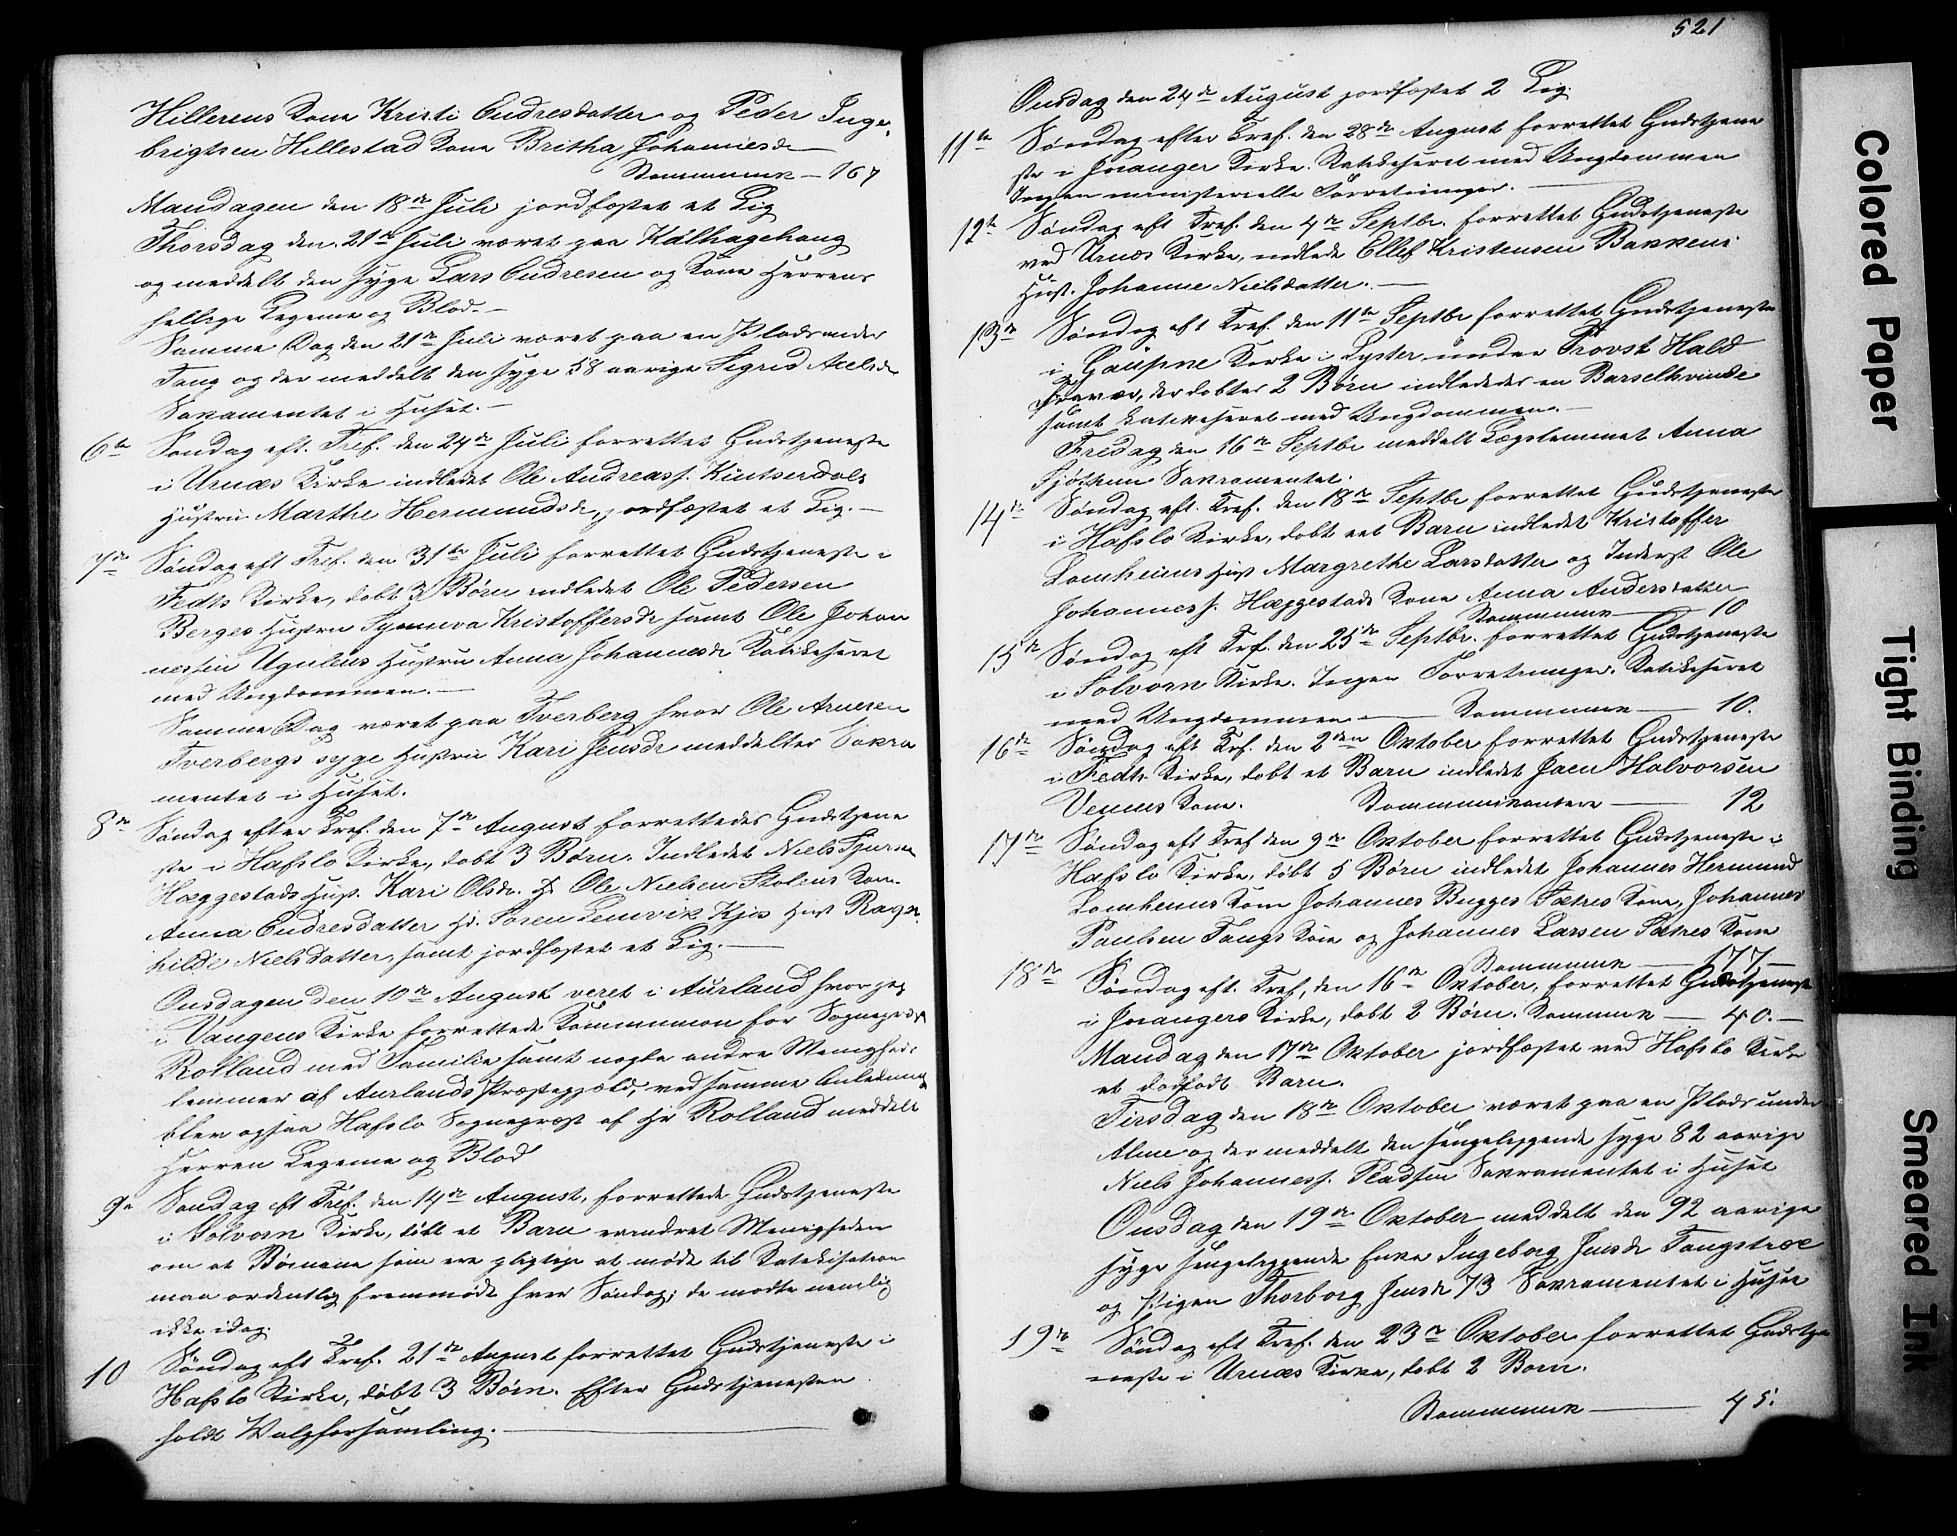 Hillerens Kone Kristi Endresdatter og Peder Inge-
brigtsen Hillestad Kone Britha Johannesdr
Kommunik — 167
Mandagen den 18de Juli jordfæstet et Lig
Thorsdag den 21de Juli været paa Kalhagehaug
og meddelt den syge Lars Endresen og Kone Herrens
hellige Legeme og Blod. —
Samme Dag den 21de Juli været paa en Plads under
Tang og der meddelt den syge 58 aarige Sigrid Nielsdr
Sakramentet i Huset. —
6te Søndag eft. Tref. den 24de Juli forrettet Gudstjeneste
i Urnæs Kirke indledet Ole Andreass.
Hustru Marthe Hermundsdr, jordfæstet et Lig. —
7de Søndag eft Tref. den 31te Juli forrettet Gudstjeneste i
Fedts Kirke, døbt 3 Børn indledet Ole Pedersen
Berges Hustru Synneva Kristoffersdr samt Ole Johan
nessen Ugulens Hustru Anna Johannesdr Katikeseret
med Ungdommen. —
Samme Dag været paa Tverberg hvor Ole Arnesen
Tverbergs syge Hustru Kari Jensdr meddeltes Sakra
mentet i Huset.
8de Søndag efter Tref. den 7de August forrettedes Gudstjene
ste i Hafslo Kirke, døbt 3 Børn. Indledet Niels
Hæggestads Hust. Kari Olsdr. Ole Nielsen Stolens Kone
Anna Endresdatter Søren Lemvik Kjes Hust Ragn
hilde Nielsdatter, samt jordfæstet et Lig. —
Onsdagen den 10de August veret i Aurland hvor jeg
i Vangens Kirke forrettede Kommunion for Sognepræst
Rolland med Familie samt nogle andre Menigheds
lemmer af Aurlands Præstegjæld, ved samme Anledning
blev ogsaa Hafslo Sognepræst af Hr Rolland meddelt
Herren Legeme og Blod
9de Søndag eft Tref. den 14de August, forrettede Gudstjeneste
i Solvorn Kirke, døbt et Barn erindret Menigheden
om at Børnene som ere pligtige at møde til Katekisation
maa ordentlig fremmøde hver Søndag; de mødte nemlig
ikke idag.
10 Søndag eft Tref. 21de August forrettet Gudstjeneste i
Hafslo Kirke, døbt 3 Børn. Efter Gudstjenesten
holdt Valgforsamling. —
521
Onsdag den 24de August jordfæstet 2 Lig.
11te Søndag efter Tref. den 28de August forrettet Gudstjene
ste i Joranger Kirke. Katikeseret med Ungdommen
Ingen ministerielle Forretninger. —
12te Søndag eft Tref. den 4de Septbr. forrettet Gudstjeneste
ved Urnæs Kirke, indlede Ellef Kristensen Bakkens
Hust. Johanne Nielsdatter. —
13de Søndag eft Tref. den 11te Septbr forrettet Gudstjeneste
i Gaupne Kirke i Lyster under Provst Hald
Fravær, der døbtes 2 Børn indlededes en Barselkvinde
samt katikeseret med Ungdommen. —
Fredag den 16de Septbr meddelt Lægslemmet Anna
Sjøthun Sakramentet.
14de Søndag eft. Tref. den 18de Septbr forrettet Gudstjeneste
i Hafslo Kirke, døbt eet Barn indledet Kristoffer
Lomheims Hust Margrethe Larsdatter og Inderst Ole
Johanness. Hæggestads Kone Anna Andersdatter
Kommunik — 10
15de Søndag eft Tref. den 25de Septbr. forrettet Gudstjeneste
i Solvorn Kirke. Ingen Forretninger. Katikeseret
med Ungdommen — Kommunik — 10.
16de Søndag eft Tref. den 2den Oktober forrettet Gudstjeneste
i Fedts Kirke, døbt et Barn indledet Jacn Halvorsen
Vennes Kone. Kommunikantere — 12
17de Søndag eft Tref den 9de Oktober forrettet Gudstjeneste i
Hafslo Kirke, døbt 5 Børn indledet Johannes Hermund
Lomheims Kone Johannes Bugges Sætres Kone, Johannes
Paulsen Tangs Kone og Johannes Larsen Sætres Kone
Kommunik — 177
18de Søndag eft. Tref, den 16de Oktober, forrettet Gudstjeneste
i Jorangers Kirke, døbt 2 Børn. Kommunik — 40. —
Mandag den 17de Oktober jordfæstet ved Hafslo Kirke
et dødfødt Barn.
Tirsdag den 18de Oktober været paa en Plads under
Alme og der meddelt den sengeliggende syge 82 aarige
Niels Johanness. Pladsen Sakramentet i Huset
Onsdag den 19de Oktober meddelt den 92 aarige
syge sengeliggende Enke Ingeborg Jensdr Tangstræe
og Pigen Thorborg Jensdr 73 Sakramentet i Huset
19de Søndag eft Tref. den 23de Oktober forrettet Gudstje
neste i Urnæs Kirke, døbt 2 Børn.
Kommunik — 45.
Colored Paper
Tight Binding
Smeared Ink